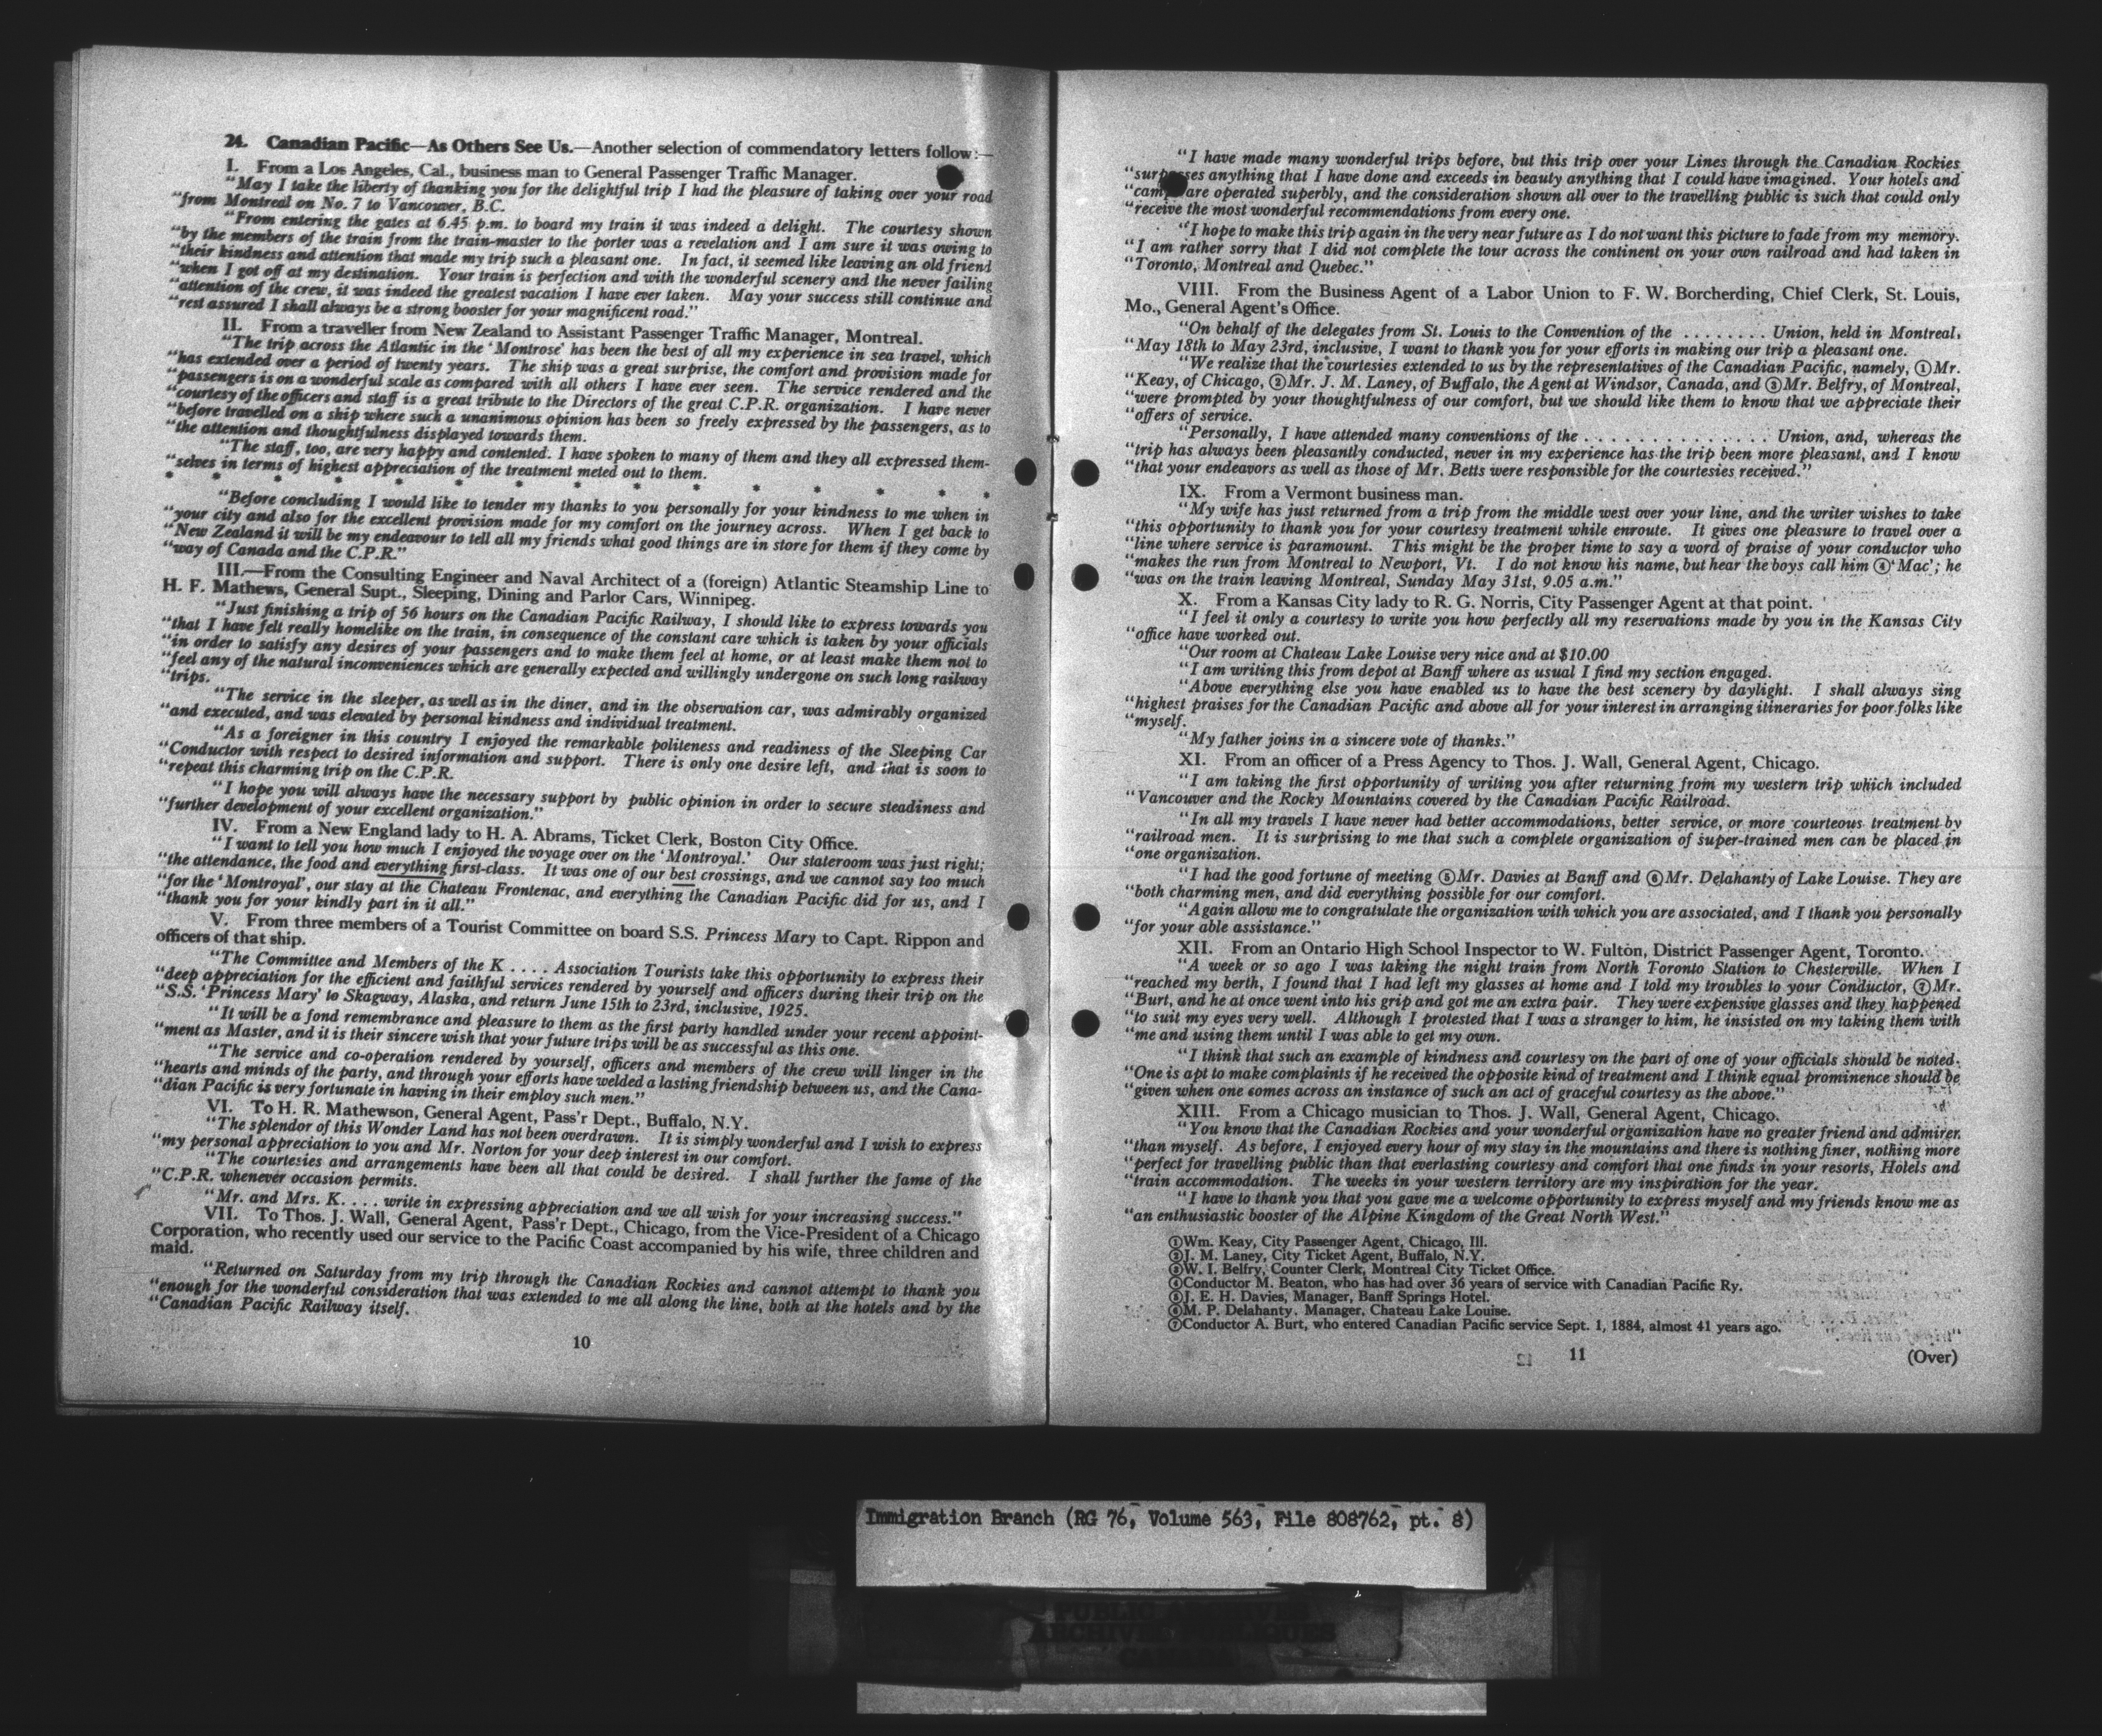 24. Canadian Pacific—As Others See Us.—Another selection of commendatory letters follow:—
I. From a Los Angeles, Cal., business man to General Passenger Traffic Manager.
"May I take the liberty of thanking you for the delightful trip I had the pleasure of taking over your road
"from Montreal on No. 7 to Vancouver, B.C.
"From entering the gates at 6.45 p.m. to board my train it was indeed a delight. The courtesy shown
"by the members of the train from the train-master to the porter was a revelation and I am sure it was owing to
"their kindness and attention that made my trip such a pleasant one. In fact, it seemed like leaving an old friend
"when I got off at my destination. Your train is perfection and with the wonderful scenery and the never failing
"attention of the crew, it was indeed the greatest vacation I have ever taken. May your success still continue and
"rest assured I shall always be a strong booster for your magnificent road."
II. From a traveller from New Zealand to Assistant Passenger Traffic Manager, Montreal.
"The trip across the Atlantic in the 'Montrose' has been the best of all my experience in sea travel, which
"has extended over a period of twenty years. The ship was a great surprise, the comfort and provision made for
"passengers is on a wonderful scale as compared with all others I have ever seen. The service rendered and the
"courtesy of the officers and staff is a great tribute to the Directors of the great C.P.R. organization. I have never
"before travelled on a ship where such a unanimous opinion has been so freely expressed by the passengers, as to
"the attention and thoughtfulness displayed towards them.
"The staff, too, are very happy and contented. I have spoken to many of them and they all expressed them-
"selves in terms of highest appreciation of the treatment meted out to them.
* * * * * * * * * * * * * *
"Before concluding I would like to tender my thanks to you personally for your kindness to me when in
"your city and also for the excellent provision made for my comfort on the journey across. When I get back to
"New Zealand it will be my endeavour to tell all my friends what good things are in store for them if they come by
"way of Canada and the C.P.R."
III.—From the Consulting Engineer and Naval Architect of a (foreign) Atlantic Steamship Line to
H. F. Mathews, General Supt., Sleeping, Dining and Parlor Cars, Winnipeg.
"Just finishing a trip of 56 hours on the Canadian Pacific Railway, I should like to express towards you
"that I have felt really homelike on the train, in consequence of the constant care which is taken by your officials
"in order to satisfy any desires of your passengers and to make them feel at home, or at least make them not to
"feel any of the natural inconveniences which are generally expected and willingly undergone on such long railway
"trips.
"The service in the sleeper, as well as in the diner, and in the observation car, was admirably organized
"and executed, and was elevated by personal kindness and individual treatment.
"As a foreigner in this country I enjoyed the remarkable politeness and readiness of the Sleeping Car
"Conductor with respect to desired information and support. There is only one desire left, and that is soon to
"repeat this charming trip on the C.P.R.
"I hope you will always have the necessary support by public opinion in order to secure steadiness and
"further development of your excellent organization."
IV. From a New England lady to H. A. Abrams, Ticket Clerk, Boston City Office.
"I want to tell you how much I enjoyed the voyage over on the 'Montroyal.' Our stateroom was just right;
"the attendance, the food and everything first-class. It was one of our best crossings, and we cannot say too much
"for the 'Montroyal', our stay at the Chateau Frontenac, and everything the Canadian Pacific did for us, and I
"thank you for your kindly part in it all."
V. From three members of a Tourist Committee on board S.S. Princess Mary to Capt. Rippon and
officers of that ship.
"The Committee and Members of the K . . . . Association Tourists take this opportunity to express their
"deep appreciation for the efficient and faithful services rendered by yourself and officers during their trip on the
"S.S. 'Princess Mary' to Skagway, Alaska, and return June 15th to 23rd, inclusive, 1925.
"It will be a fond remembrance and pleasure to them as the first party handled under your recent appoint-
"ment as Master, and it is their sincere wish that your future trips will be as successful as this one.
"The service and co-operation rendered by yourself, officers and members of the crew will linger in the
"hearts and minds of the party, and through your efforts have welded a lasting friendship between us, and the Cana-
"dian Pacific is very fortunate in having in their employ such men."
VI. To H. R. Mathewson, General Agent, Pass'r Dept., Buffalo, N.Y.
"The splendor of this Wonder Land has not been overdrawn. It is simply wonderful and I wish to express
"my personal appreciation to you and Mr. Norton for your deep interest in our comfort.
"The courtesies and arrangements have been all that could be desired. I shall further the fame of the
"C.P.R. whenever occasion permits.
"Mr. and Mrs. K. . . . write in expressing appreciation and we all wish for your increasing success."
VII. To Thos. J. Wall, General Agent, Pass'r Dept., Chicago, from the Vice-President of a Chicago
Corporation, who recently used our service to the Pacific Coast accompanied by his wife, three children and
maid.
"Returned on Saturday from my trip through the Canadian Rockies and cannot attempt to thank you
"enough for the wonderful consideration that was extended to me all along the line, both at the hotels and by the
"Canadian Pacific Railway itself.
10
"I have made many wonderful trips before, but this trip over your Lines through the Canadian Rockies
"surpasses anything that I have done and exceeds in beauty anything that I could have imagined. Your hotels and
"camps are operated superbly, and the consideration shown all over to the travelling public is such that could only
"receive the most wonderful recommendations from every one.
"I hope to make this trip again in the very near future as I do not want this picture to fade from my memory.
"I am rather sorry that I did not complete the tour across the continent on your own railroad and had taken in
"Toronto, Montreal and Quebec."
VIII. From the Business Agent of a Labor Union to F. W. Borcherding, Chief Clerk, St. Louis,
Mo., General Agent's Office.
"On behalf of the delegates from St. Louis to the Convention of the . . . . . . . . Union, held in Montreal,
"May 18th to May 23rd, inclusive, I want to thank you for your efforts in making our trip a pleasant one.
"We realize that the courtesies extended to us by the representatives of the Canadian Pacific, namely, ①Mr.
"Keay, of Chicago, ②Mr. J. M. Laney, of Buffalo, the Agent at Windsor, Canada, and ③Mr. Belfry, of Montreal,
"were prompted by your thoughtfulness of our comfort, but we should like them to know that we appreciate their
"offers of service.
"Personally, I have attended many conventions of the . . . . . . . . . . . . . . . . Union, and, whereas the
"trip has always been pleasantly conducted, never in my experience has the trip been more pleasant, and I know
"that your endeavors as well as those of Mr. Betts were responsible for the courtesies received."
IX. From a Vermont business man.
"My wife has just returned from a trip from the middle west over your line, and the writer wishes to take
"this opportunity to thank you for your courtesy treatment while enroute. It gives one pleasure to travel over a
"line where service is paramount. This might be the proper time to say a word of praise of your conductor who
"makes the run from Montreal to Newport, Vt. I do not know his name, but hear the boys call him ④'Mac'; he
"was on the train leaving Montreal, Sunday May 31st, 9.05 a.m."
X. From a Kansas City lady to R. G. Norris, City Passenger Agent at that point.
"I feel it only a courtesy to write you how perfectly all my reservations made by you in the Kansas City
"office have worked out.
"Our room at Chateau Lake Louise very nice and at $10.00
"I am writing this from depot at Banff where as usual I find my section engaged.
"Above everything else you have enabled us to have the best scenery by daylight. I shall always sing
"highest praises for the Canadian Pacific and above all for your interest in arranging itineraries for poor folks like
"myself.
"My father joins in a sincere vote of thanks."
XI. From an officer of a Press Agency to Thos. J. Wall, General Agent, Chicago.
"I am taking the first opportunity of writing you after returning from my western trip which included
"Vancouver and the Rocky Mountains covered by the Canadian Pacific Railroad.
"In all my travels I have never had better accommodations, better service, or more courteous treatment by
"railroad men. It is surprising to me that such a complete organization of super-trained men can be placed in
"one organization.
"I had the good fortune of meeting ⑤Mr. Davies at Banff and ⑥Mr. Delahanty of Lake Louise. They are
"both charming men, and did everything possible for our comfort.
"Again allow me to congratulate the organization with which you are associated, and I thank you personally
"for your able assistance."
XII. From an Ontario High School Inspector to W. Fulton, District Passenger Agent, Toronto.
"A week or so ago I was taking the night train from North Toronto Station to Chesterville. When I
"reached my berth, I found that I had left my glasses at home and I told my troubles to your Conductor, ⑦Mr.
"Burt, and he at once went into his grip and got me an extra pair. They were expensive glasses and they happened
"to suit my eyes very well. Although I protested that I was a stranger to him, he insisted on my taking them with
"me and using them until I was able to get my own.
"I think that such an example of kindness and courtesy on the part of one of your officials should be noted.
"One is apt to make complaints if he received the opposite kind of treatment and I think equal prominence should be
"given when one comes across an instance of such an act of graceful courtesy as the above."
XIII. From a Chicago musician to Thos. J. Wall, General Agent, Chicago.
"You know that the Canadian Rockies and your wonderful organization have no greater friend and admirer
"than myself. As before, I enjoyed every hour of my stay in the mountains and there is nothing finer, nothing more
"perfect for travelling public than that everlasting courtesy and comfort that one finds in your resorts, Hotels and
"train accommodation. The weeks in your western territory are my inspiration for the year.
"I have to thank you that you gave me a welcome opportunity to express myself and my friends know me as
"an enthusiastic booster of the Alpine Kingdom of the Great North West."
①Wm. Keay, City Passenger Agent, Chicago, Ill.
②J. M. Laney, City Ticket Agent, Buffalo, N.Y.
③W. I. Belfry, Counter Clerk, Montreal City Ticket Office.
④Conductor M. Beaton, who has had over 36 years of service with Canadian Pacific Ry.
⑤J. E. H. Davies, Manager, Banff Springs Hotel.
⑥M. P. Delahanty, Manager, Chateau Lake Louise.
⑦Conductor A. Burt, who entered Canadian Pacific service Sept. 1, 1884, almost 41 years ago.
11
(Over)
Immigration Branch (RG 76, Volume 563, File 808762, pt. 8)
PUBLIC ARCHIVES
ARCHIVES PUBLIQUES
CANADA